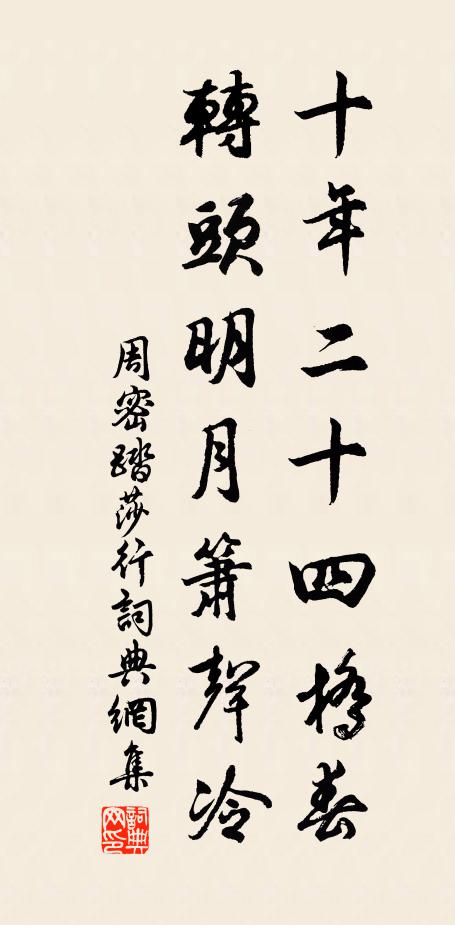 十年二十四橋春
轉頭明月簫聲冷
周密踏莎行詞典網集
詞典網印